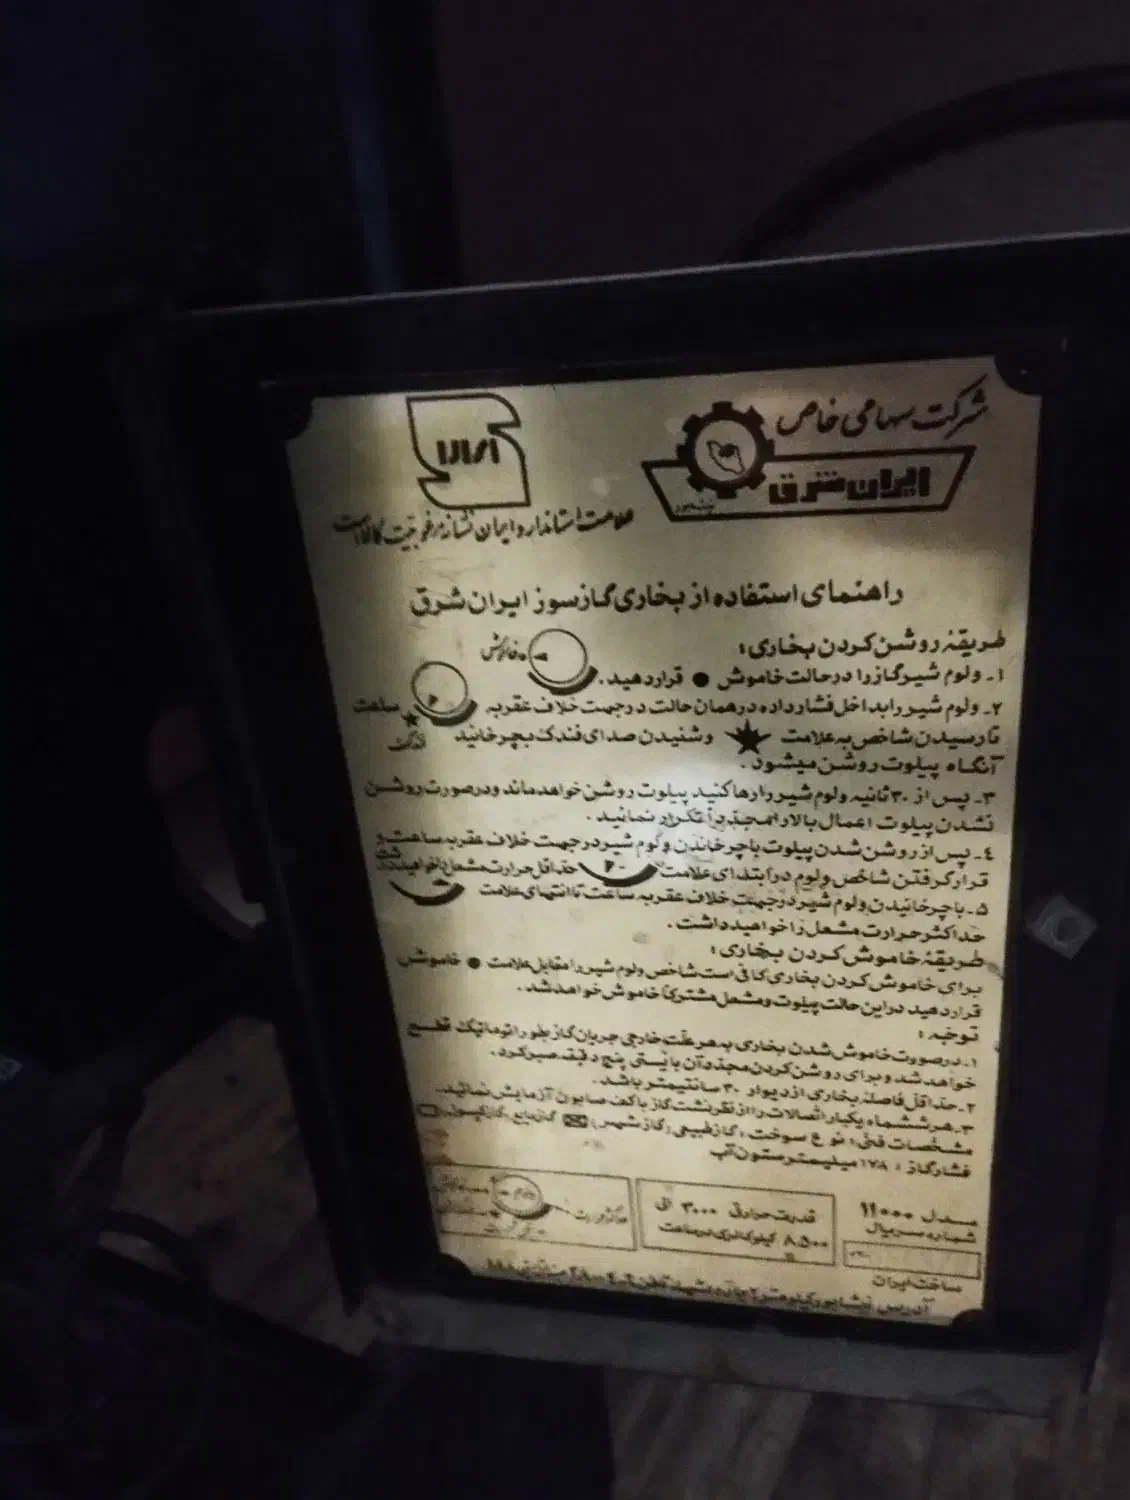 شرکت سهامی خاص
ایران شرق
علامت استاندارد ایران نشانه مرغوبیت کالا است
راهنمای استفاده از بخاری گازسوز ایران شرق
طریقهٔ روشن کردن بخاری:
۱ـ ولوم شیر گاز را در حالت خاموش ● قرار دهید. خاموش
۲ـ ولوم شیر را بداخل فشار داده در همان حالت در جهت خلاف عقربه ساعت
تا رسیدن شاخص به علامت ★ و شنیدن صدای فندک بچرخانید فندک
آنگاه پیلوت روشن میشود.
۳ـ پس از ۳۰ ثانیه ولوم شیر را رها کنید پیلوت روشن خواهد ماند و در صورت روشن
نشدن پیلوت اعمال بالا را مجدداً تکرار نمائید.
٤ـ پس از روشن شدن پیلوت با چرخاندن ولوم شیر در جهت خلاف عقربه ساعت و
قرار گرفتن شاخص ولوم در ابتدای علامت حداقل حرارت مشعل را خواهید داشت
۵ـ با چرخانیدن ولوم شیر در جهت خلاف عقربه ساعت تا انتهای علامت
حداکثر حرارت مشعل را خواهید داشت.
طریقهٔ خاموش کردن بخاری:
برای خاموش کردن بخاری کافی است شاخص ولوم شیر را مقابل علامت ● خاموش
قرار دهید در این حالت پیلوت و مشعل مشترکاً خاموش خواهد شد.
توجه:
۱ـ در صورت خاموش شدن بخاری به هر علت خارجی جریان گاز بطور اتوماتیک قطع
خواهد شد و برای روشن کردن مجدد آن بایستی پنج دقیقه صبر کرد.
۲ـ حداقل فاصله بخاری از دیوار ۳۰ سانتیمتر باشد.
۳ـ هر ششماه یکبار اتصالات را از نظر نشت گاز با کف صابون آزمایش نمائید.
مشخصات فنی: نوع سوخت: گاز طبیعی (گاز شهر) ☒ گاز مایع (گاز کپسول) ☐
فشار گاز: ۱۷۸ میلیمتر ستون آب
مدل ۱۱۰۰۰
شماره سریال
قدرت حرارتی ۳۰۰۰ الی
۸۵۰۰ کیلوکالری در ساعت
ساخت ایران
آدرس نیشابور کیلومتر ۲ جاده مشهد تلفن